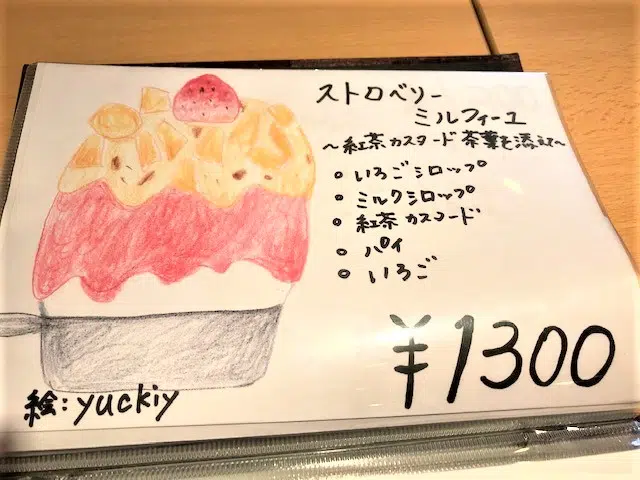 ストロベリー
ミルフィーユ
～紅茶カスタード 茶葉を添えて～
○ いちごシロップ
○ ミルクシロップ
○ 紅茶カスタード
○ パイ
○ いちご
¥1300
絵:yuckiy